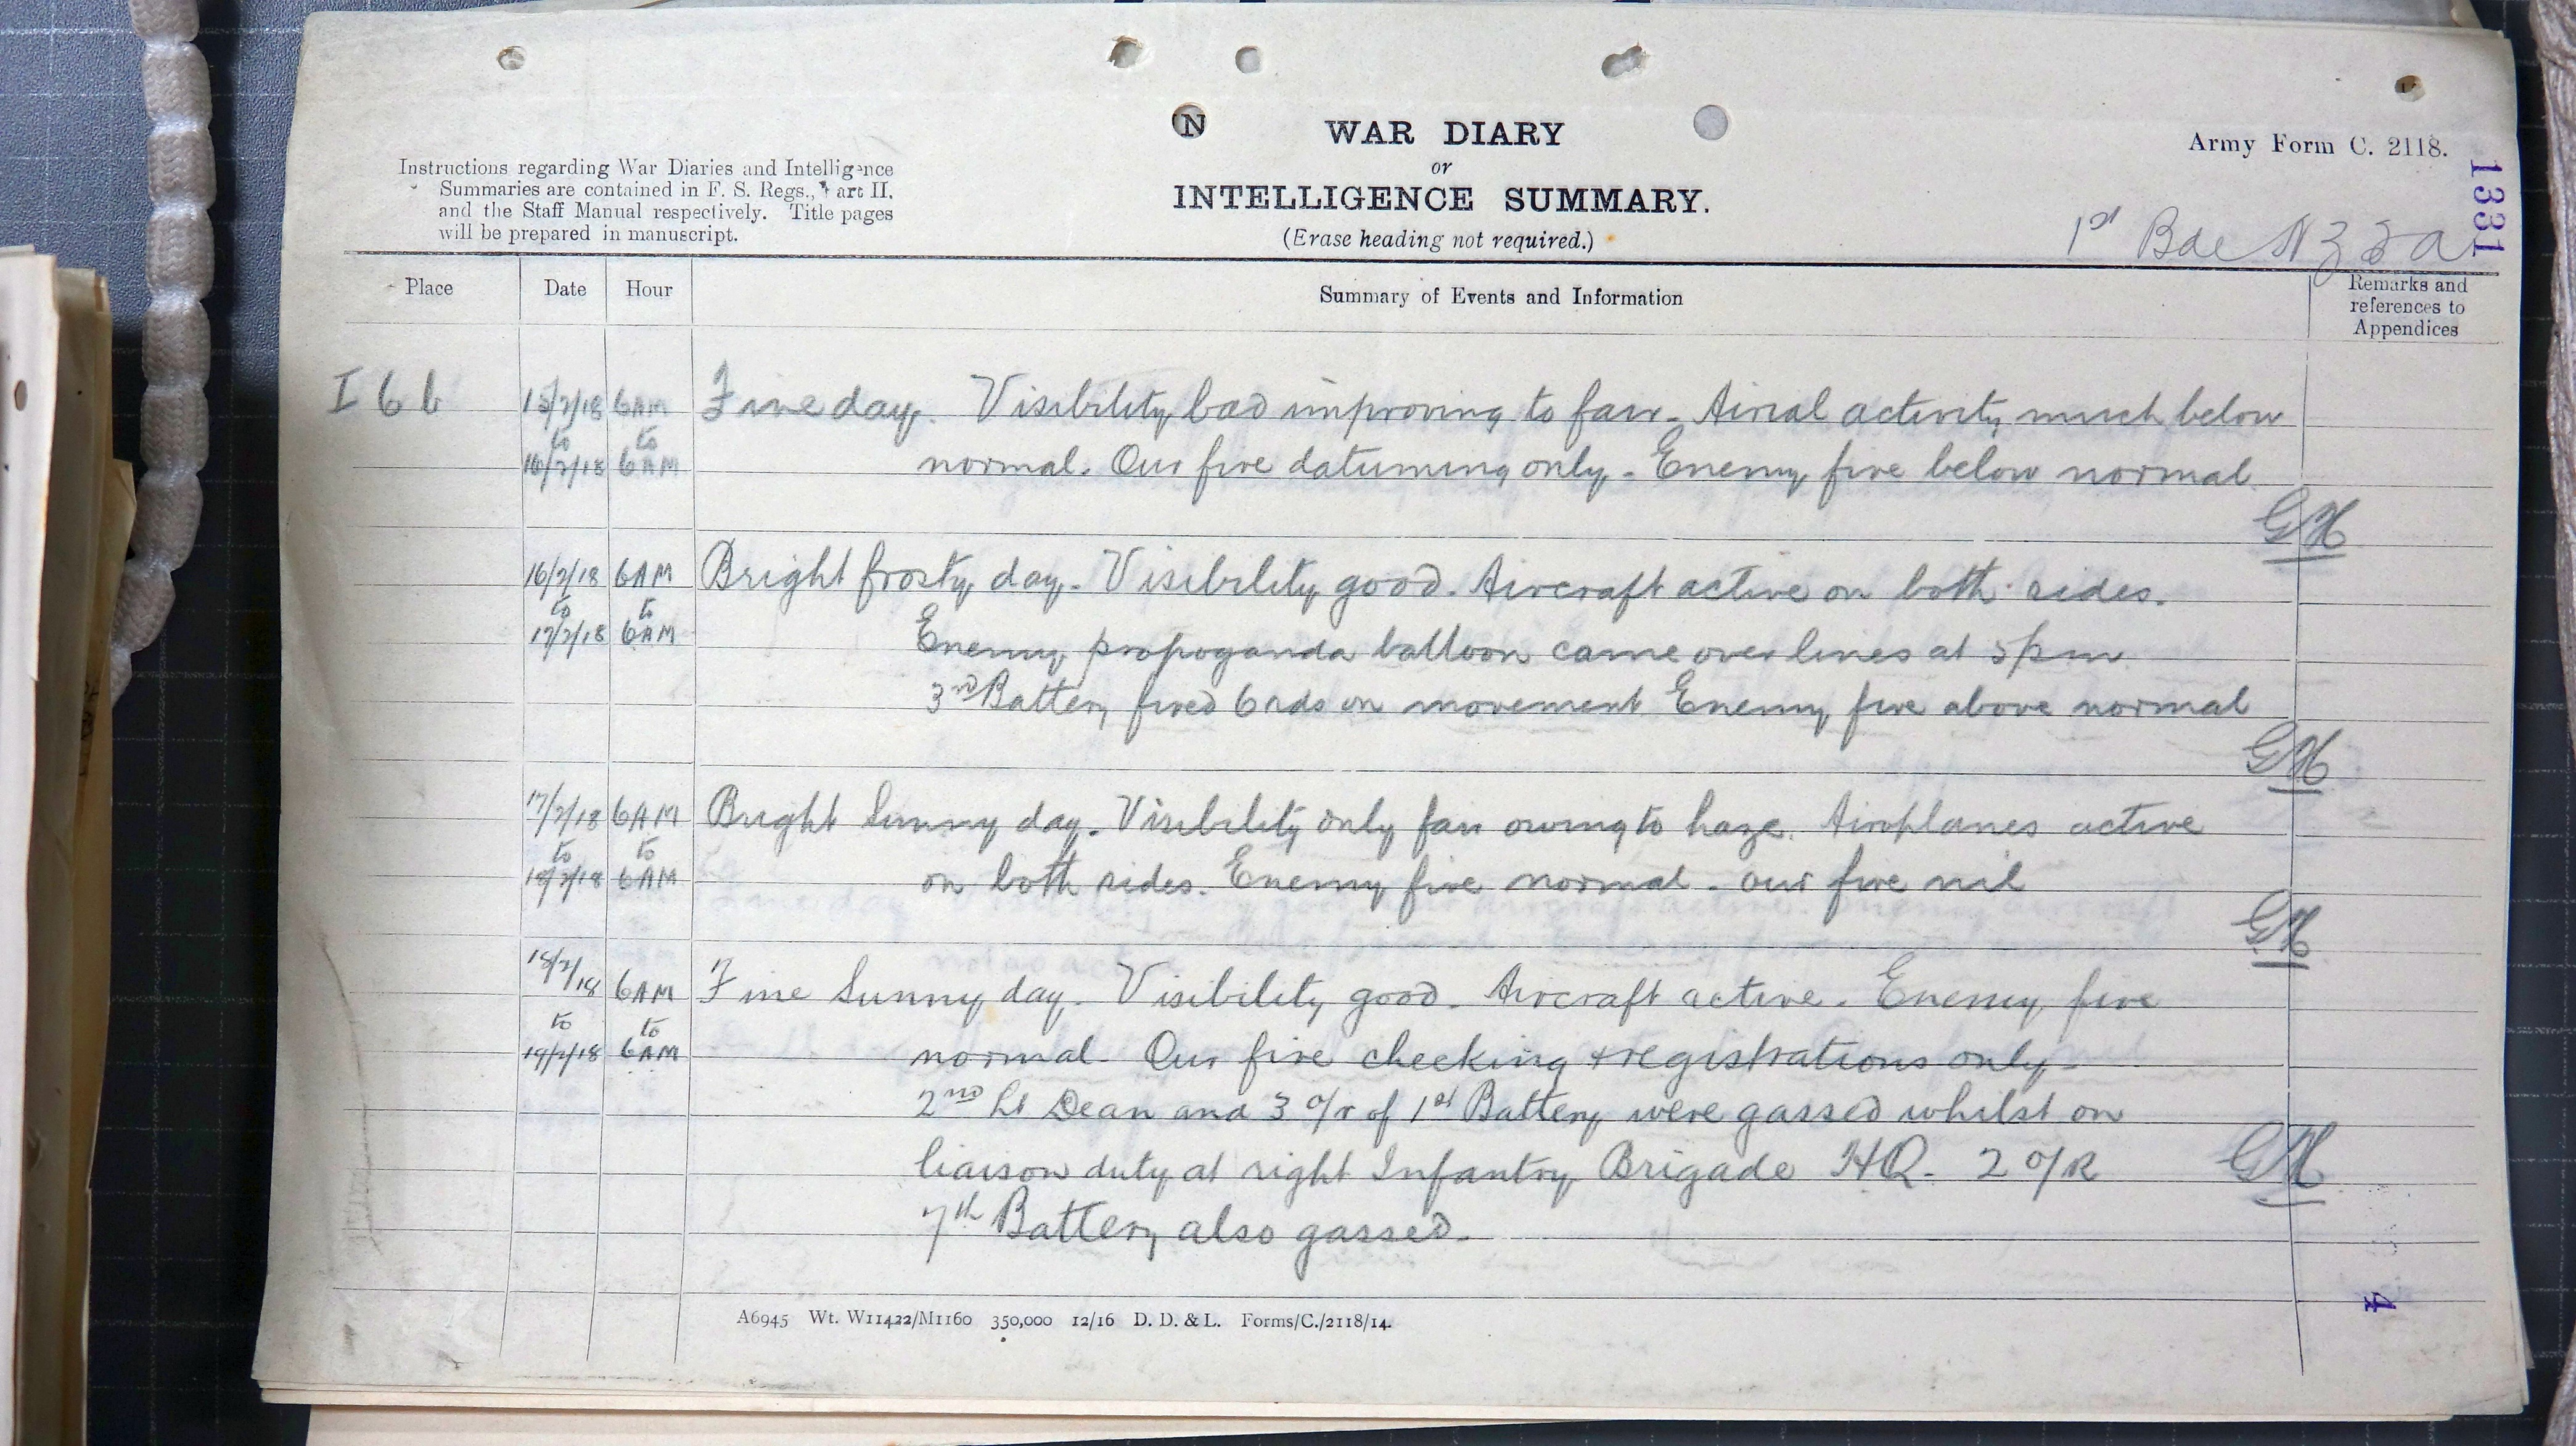 N
WAR DIARY
or
INTELLIGENCE SUMMARY.
(Erase heading not required.)
Army Form C. 2118.
1331
Instructions regarding War Diaries and Intelligence
Summaries are contained in F. S. Regs., Part II.
and the Staff Manual respectively. Title pages
will be prepared in manuscript.
1st Bde NZFA
Place Date Hour Summary of Events and Information Remarks and
references to
Appendices
I 6 b 15/2/18 6AM Fine day. Visibility bad improving to fair - Airial activity much below
to to
16/2/18 6AM normal. Our fire datuming only - Enemy fire below normal
GH
16/2/18 6AM Bright frosty day - Visibility good. Aircraft active on both sides.
to to
17/2/18 6AM Enemy propoganda balloon came over lines at 5pm
3rd Battery fired 6 rds on movement Enemy fire above normal
GH
17/2/18 6AM Bright Sunny day. Visibility only fair owing to haze. Airoplanes active
to to
18/2/18 6AM on both sides. Enemy fire normal - our fire nil
GH
18/2/18 6AM Fine Sunny day. Visibility good - Aircraft active - Enemy fire
to to
19/2/18 6AM normal - Our fire checking + registrations only -
2nd Lt Dean and 3 o/r of 1st Battery were gassed whilst on
liaison duty at right Infantry Brigade HQ - 2 o/R GH
7th Battery also gassed.
A6945 Wt. W11422/M1160 350,000 12/16 D. D. & L. Forms/C./2118/14.
4